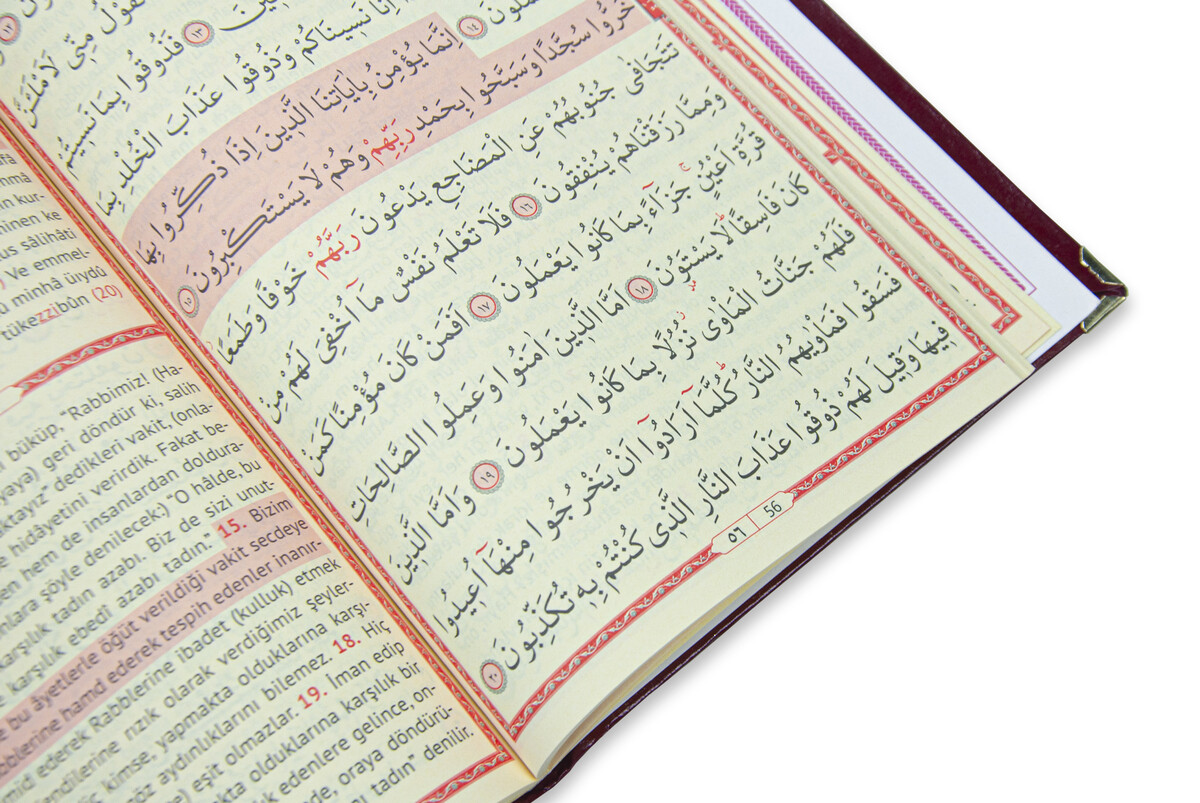 ١٢
نَقُولُ مِنّٖى لَاَمْلَـَٔنَّ
١٣ فَذُوقُوا بِمَا نَسٖيتُمْ
اِنَّا نَسٖينَاكُمْ وَذُوقُوا عَذَابَ الْخُلْدِ بِمَا
تَعْمَلُونَ ١٤ اِنَّمَا يُؤْمِنُ بِاٰيَاتِنَا الَّذٖينَ اِذَا ذُكِّرُوا بِهَا
خَرُّوا سُجَّدًا وَسَبَّحُوا بِحَمْدِ رَبِّهِمْ وَهُمْ لَا يَسْتَكْبِرُونَ ١٥
تَتَجَافٰى جُنُوبُهُمْ عَنِ الْمَضَاجِعِ يَدْعُونَ رَبَّهُمْ خَوْفًا وَطَمَعًا
وَمِمَّا رَزَقْنَاهُمْ يُنْفِقُونَ ١٦ فَلَا تَعْلَمُ نَفْسٌ مَٓا اُخْفِىَ لَهُمْ مِنْ
قُرَّةِ اَعْيُنٍۚ جَزَٓاءً بِمَا كَانُوا يَعْمَلُونَ ١٧ اَفَمَنْ كَانَ مُؤْمِنًا كَمَنْ
كَانَ فَاسِقًاؕ لَا يَسْتَوُ۫نَ ١٨ اَمَّا الَّذٖينَ اٰمَنُوا وَعَمِلُوا الصَّالِحَاتِ
فَلَهُمْ جَنَّاتُ الْمَاْوٰىؗ نُزُلًا بِمَا كَانُوا يَعْمَلُونَ ١٩ وَاَمَّا الَّذٖينَ
فَسَقُوا فَمَاْوٰيهُمُ النَّارُ كُلَّمَٓا اَرَادُٓوا اَنْ يَخْرُجُوا مِنْهَٓا اُعٖيدُوا
فٖيهَا وَقٖيلَ لَهُمْ ذُوقُوا عَذَابَ النَّارِ الَّذٖى كُنْتُمْ بِهٖ تُكَذِّبُونَ ٢٠
٥٦ 56
hinen ke
us sâlihâti
Ve emmel
û minhâ üıydû
tükezzibûn (20)
büküp, "Rabbimiz! (Ha-
yaya) geri döndür ki, salih
ktayız" dedikleri vakit, (onla-
e hidâyetini verirdik. Fakat be-
en hem de insanlardan doldura-
nlara şöyle denilecek:) "O hâlde, bu
karşılık tadın azabı. Biz de sizi unut-
e karşılık ebedî azabı tadın." 15. Bizim
bu âyetlerle öğüt verildiği vakit secdeye
blerine hamd ederek tespih edenler inanır-
mid ederek Rabblerine ibadet (kulluk) etmek
endilerine rızık olarak verdiğimiz şeyler-
kimse, yapmakta olduklarına karşı-
göz aydınlıklarını bilemez. 18. Hiç
eşit olmazlar. 19. İman edip
makta olduklarına karşılık bir
k edenlere gelince, on-
oraya döndürü-
tadın" denilir.